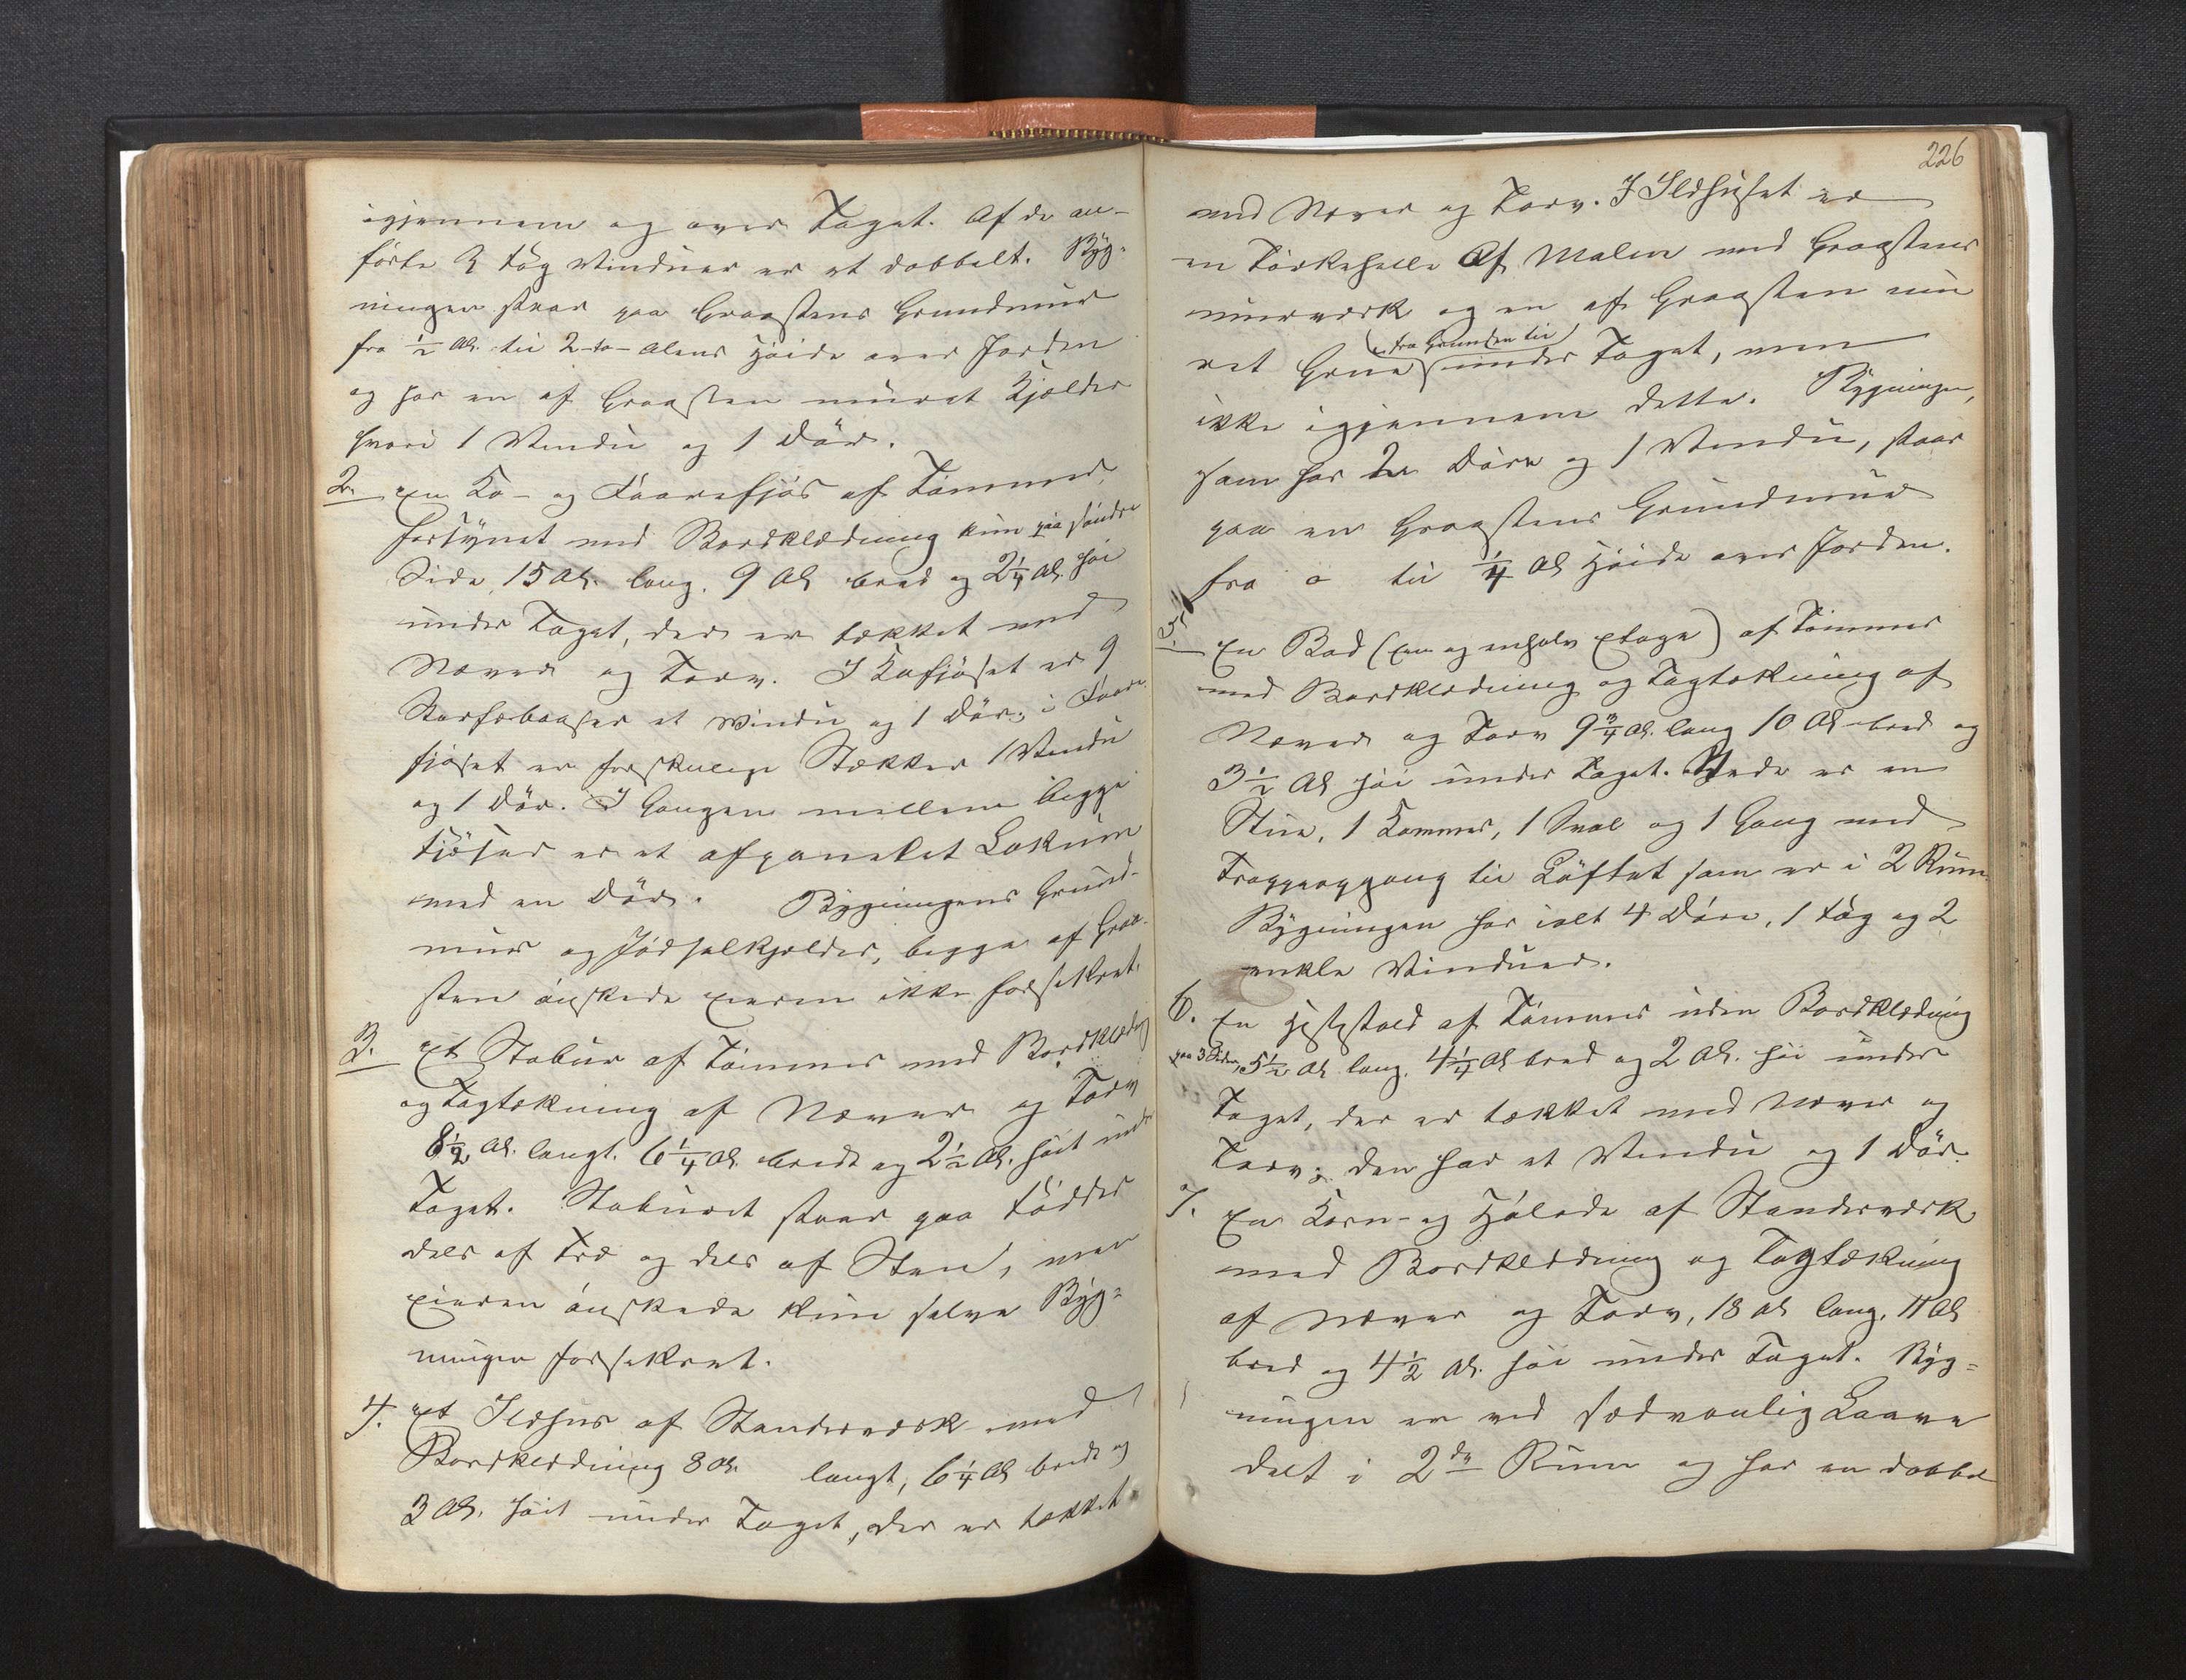 igjennem og over Taget. Af de an-
førte 3 Fag Vinduer er et dobbelt. Byg-
ningen staar paa Graastens Grundmur
fra ½ Al. til 2-to- Alens Høide over Jorden
og har en af Graasten muret Kjelder
hvori 1 Vindu og 1 Dør.
2. En Ko- og Faarefjøs af Tømmer,
forsynet med Bordklædning kun paa søndre
Side, 15 Al. lang, 9 Al bred og 2¼ Al. høi
under Taget, der er tækket med
Næver og Torv. I Kofjøset er 9
Storfæbaaser et Vindu og 1 Dør; i Faare-
fjøset er forskjellige Stækker 1 Vindu
og 1 Dør. I Gangen mellem begge
Fjøser er et afpanelet Lokum
med en Dør. Bygningens Grund-
mur og Gjødselkjelder, begge af Graa-
sten ønskede Eieren ikke forsikret.
3. Et Stabur af Tømmer med Bordklædng
og Tagtækning af Næver og Torv
8½ Al. langt. 6¼ Al. bredt og 2½ Al. høit under
Taget. Staburet staar paa Fødder
dels af Træ og dels af Sten, men
Eieren ønskede kun selve Byg-
ningen forsikret.
4. Et Ildhus af Standerværk med
Bordklædning 8 Al. langt, 6¼ Al bredt og
3 Al. høit under Taget, der er tækket
226
med Næver og Torv. I Ildhuset er
en Tørkehelle af Malm med Graastens
murværk og en af Graasten mu
ret Grue (fra Grunden til) under Taget, men
ikke igjennem dette. Bygningen,
som har 2 Døre og 1 Vindu, staar
paa en Graastens Grundmur
fra o til ¼ Al Høide over Jorden.
5. En Bod (Een og enhalv Etage) af Tømmer
med Bordklædning og Tagtækning af
Næver og Torv 9¾ Al. lang 10 Al bred og
3½ Al høi under Taget. Nede er en
Stue, 1 Kammer, 1 Sval og 1 Gang med
Trappeopgang til Løftet som er i 2 Rum.
Bygningen har ialt 4 Døre, 1 Fag og 2
enkle Vinduer.
6. En Hestestald af Tømmer uden Bordklædning
paa 3 Sider, 5½ Al lang. 4¼ Al bred og 2 Al. høi under
Taget, der er tækket med Næver og
Torv; den har et Vindu og 1 Dør.
7. En Korn- og Hølade af Standerværk
med Bordklædning og Tagtækning
af Næver og Torv, 18 Al lang, 11 Al
bred og 4½ Al. høi under Taget. Byg-
ningen er ved sædvanlig Laave
delt i 2de Rum og har en dobbel